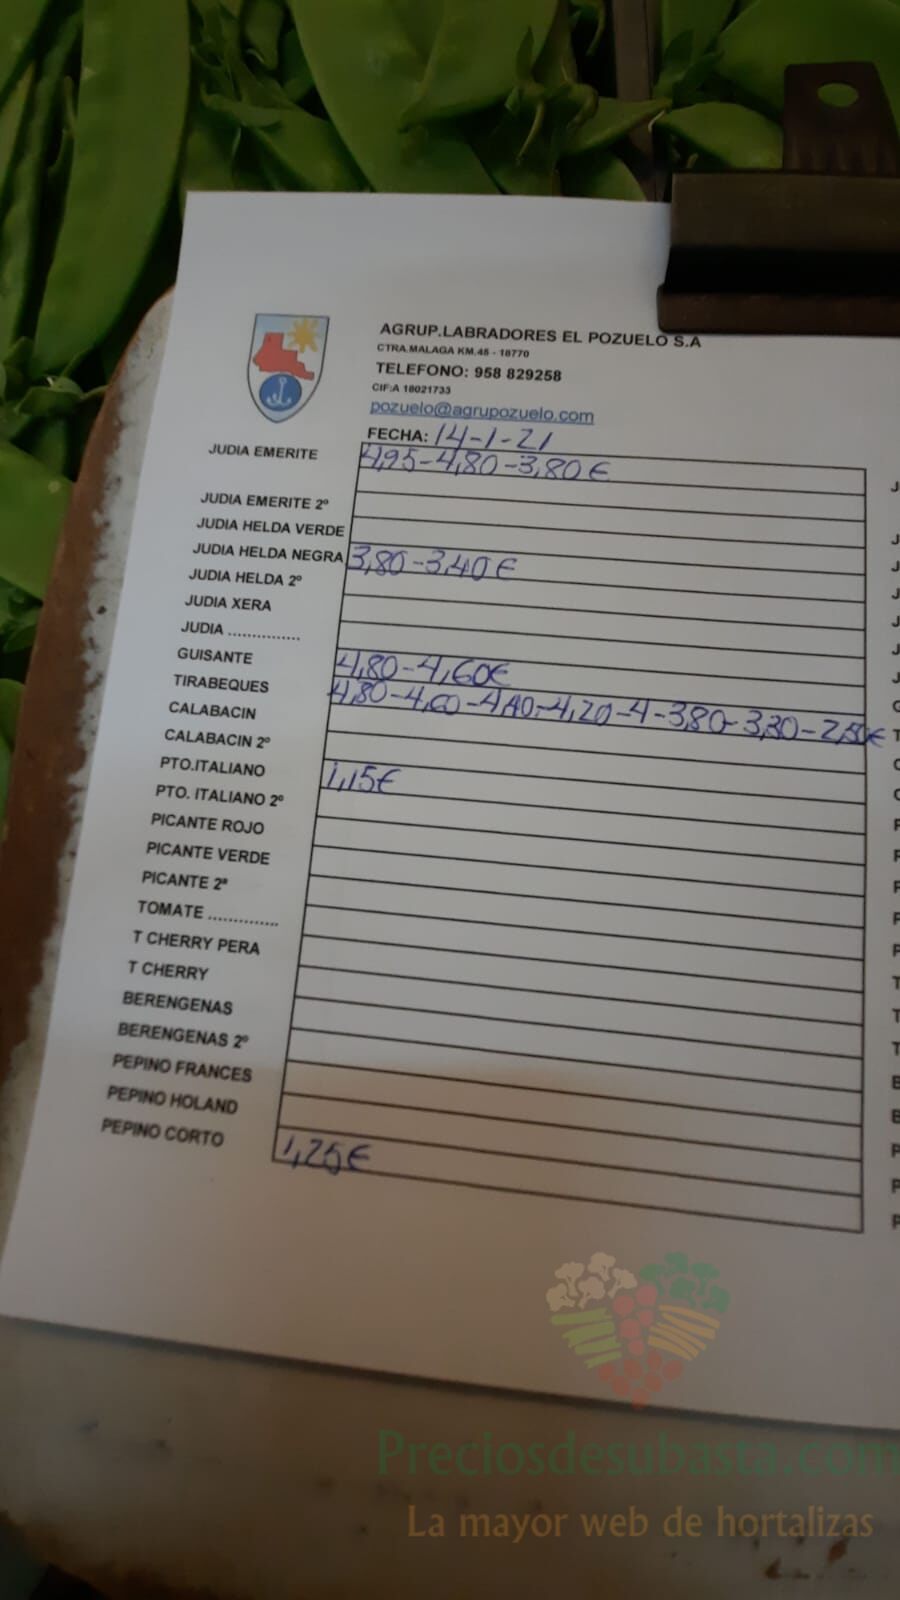 AGRUP.LABRADORES EL POZUELO S.A
CTRA.MALAGA KM.45 - 18770
TELEFONO: 958 829258
CIF:A 18021733
pozuelo@agrupozuelo.com
FECHA: 14-1-21
JUDIA EMERITE 4,95-4,80-3,80€
JUDIA EMERITE 2º
JUDIA HELDA VERDE
JUDIA HELDA NEGRA 3,80-3,40€
JUDIA HELDA 2º
JUDIA XERA
JUDIA ...............
GUISANTE 4,80-4,60€
TIRABEQUES 4,80-4,60-4,40-4,20-4-3,80-3,30-2,50€
CALABACIN
CALABACIN 2º
PTO.ITALIANO 1,15€
PTO. ITALIANO 2º
PICANTE ROJO
PICANTE VERDE
PICANTE 2ª
TOMATE ..............
T CHERRY PERA
T CHERRY
BERENGENAS
BERENGENAS 2º
PEPINO FRANCES
PEPINO HOLAND
PEPINO CORTO 1,25€
Preciosdesubasta.com
La mayor web de hortalizas